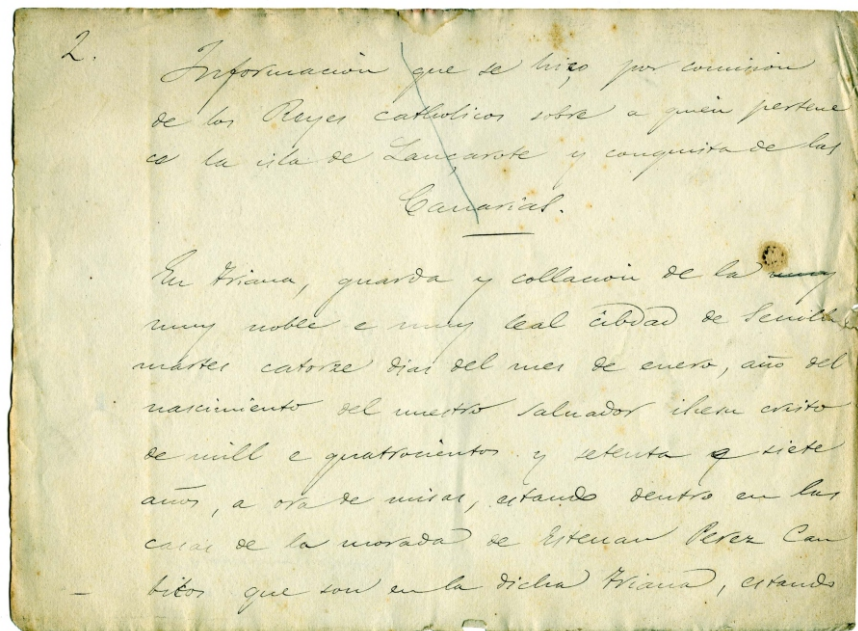 2.
Informacion que se hiço por comision
de los Reyes catholicos sobre a quien pertene
ce la isla de Lançarote y conquista de las
Canarias.
En Triana, guarda y collacion de la muy
muy noble e muy leal cibdad de Seuilla
martes catorze dias del mes de enero, año del
nascimiento del nuestro saluador ihesu cristo
de mill e quatrocientos y setenta e siete
años, a ora de misas, estando dentro en las
casas de la morada de Esteuan Perez Can
bitos que son en la dicha Triana, estando